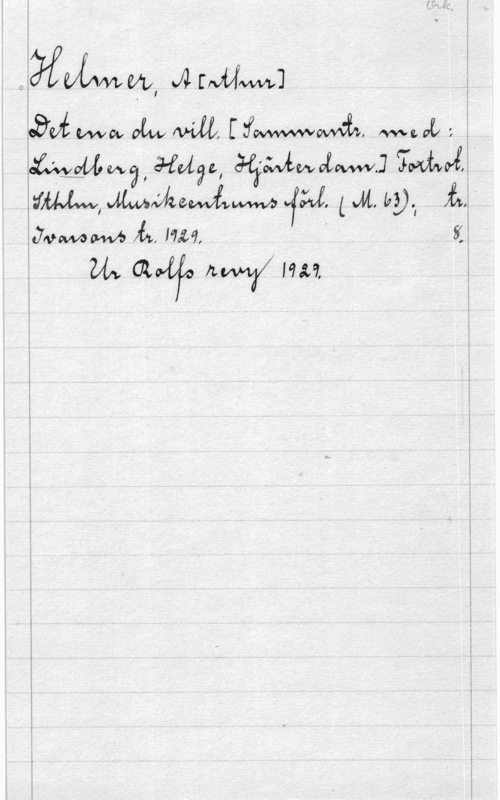 Ork.
Helmer, A[rthur]
Det ena du vill. [Sammantr. med:
Lindberg, Helge, Hjärterdam.] Foxtrot.
Sthlm, Musikcentrums förl. (M. 63); tr.
Ivarsons tr. 1929. 8.
Ur Rolfs revy 1929.